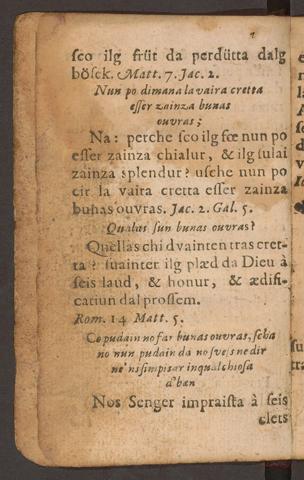 sco ilg früt da perdütta dalg
bösck. Matt. 7. Jac. 2.
Nun po dimana la vaira cretta
esser zainza bunas
ouvras;
Na: perche sco ilg fœ nun po
esser zainza chialur, & ilg sulai
zainza splendur? usche nun po
eir la vaira cretta esser zainza
bunas ouvras. Jac. 2. Gal. 5.
Qualas sun bunas ouvras?
Quellas chi dvainten tras cret-
ta? suainter ilg plæd da Dieu à
seis laud, & honur, & ædifi-
catiun dal prossem.
Rom. 14 Matt. 5.
Co pudain no far bunas ouvras, scha
no nun pudain da nosves ne dir
ne inpisar inqualchiosa
d'ban
Nos Senger impraista à seis
elets